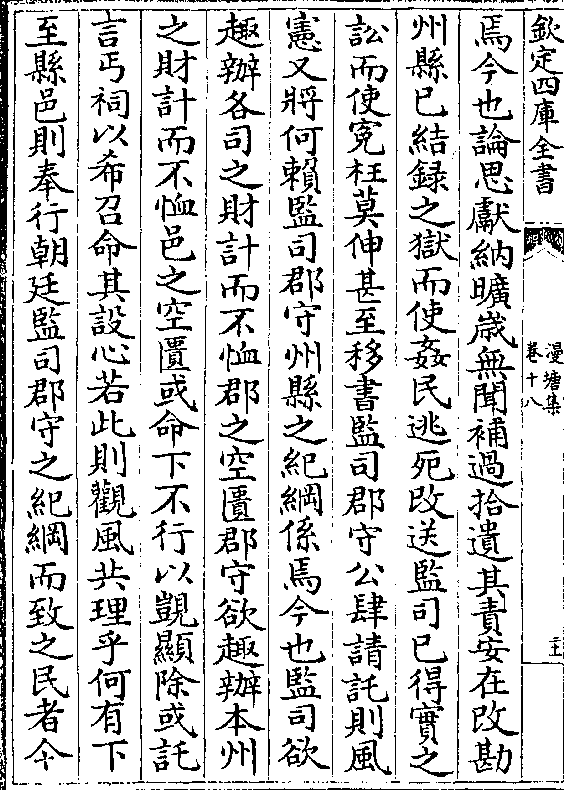 欽定四庫全書
漫塘集
卷十八
焉今也論思獻納曠歳無聞補過拾遺其責安在改勘
州縣已結録之獄而使姦民逃死改送監司已得實之
訟而使寃枉莫伸甚至移書監司郡守公肆請託則風
憲又將何賴監司郡守州縣之紀綱係焉今也監司欲
趣辦各司之財計而不恤郡之空匱郡守欲趣辦本州
之財計而不恤邑之空匱或命下不行以覬顯除或託
言丐祠以希召命其設心若此則觀風共理乎何有下
至縣邑則奉行朝廷監司郡守之紀綱而致之民者今